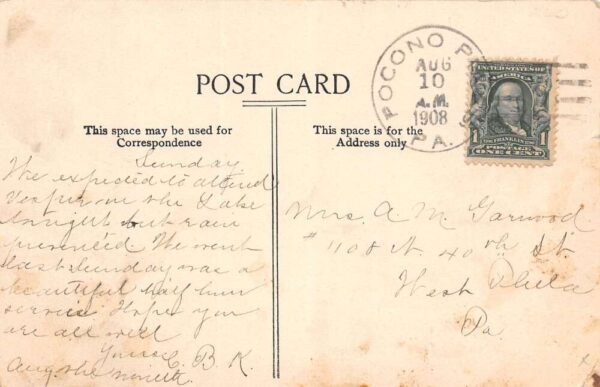 POST CARD
This space may be used for
Correspondence
This space is for the
Address only
POCONO P
AUG
10
A.M.
1908
PA.
UNITED STATES OF
AMERICA
FRANKLIN
1 ONE CENT 1
Sunday
We expected to attend
Vesper on the Lake
tonight but rain
prevented We went
last Sunday was a
beautiful half hour
service Hope you
are all well
Yours C. B. K.
Aug. the nineth
Mrs. A. M. Garwood
# 1108 N. 40th St.
West Phila
Pa.